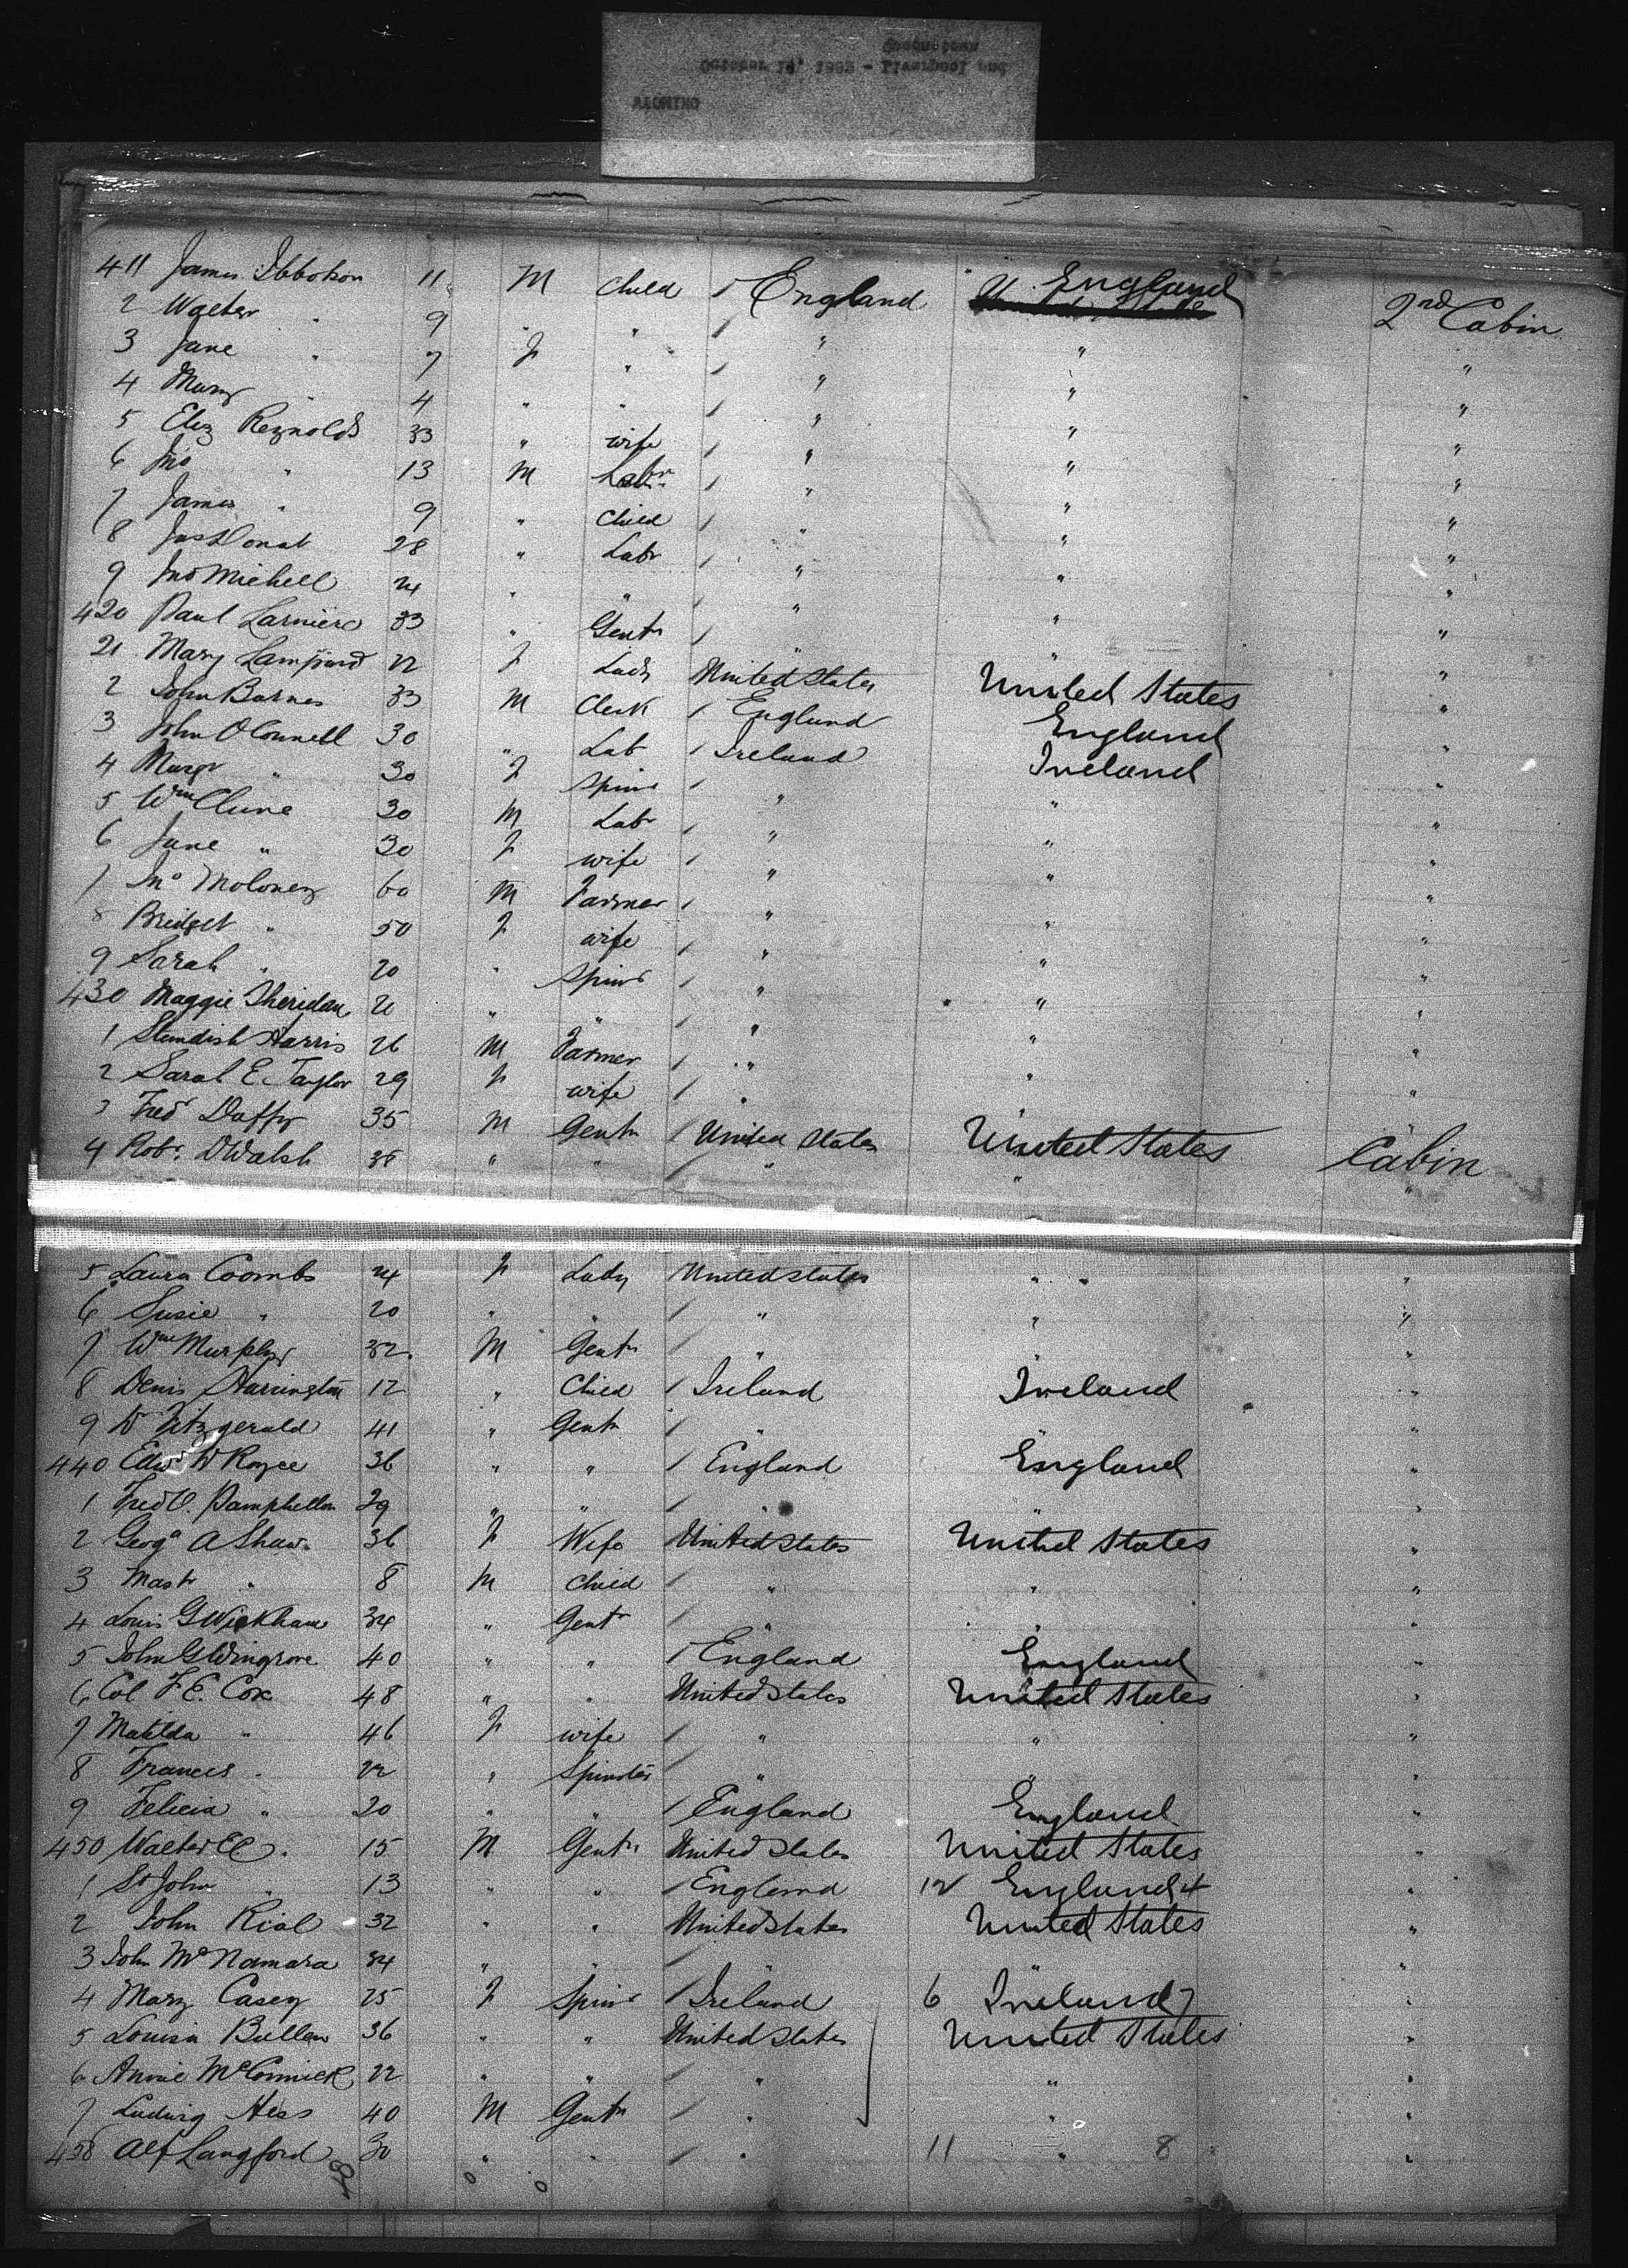 411 James Ibbotson 11 M Child / England England 2nd Cabin
2 Walter " 9 " " / " " "
3 Jane " 7 F " / " " "
4 Mary " 4 " " / " " "
5 Eliz Reynolds 33 " wife / " " "
6 Jno " 13 M Labr / " " "
7 James " 9 " Child / " " "
8 Jas Donat 28 " Labr / " " "
9 Jno Michell 24 " " / " " "
420 Paul 33 " Gentn / " " "
21 Mary Lampard 22 F Lady United States United States "
2 John Barnes 33 M Clerk / England England "
3 John O'Connell 30 " Lab / Ireland Ireland "
4 Margt " 30 F Spinr / " " "
5 Wm Clune 30 M Labr / " " "
6 Jane " 30 F wife / " " "
7 Jno Moloney 60 M Farmer / " " "
8 Bridget " 50 F wife / " " "
9 Sarah " 20 " Spinr / " " "
430 Maggie Sheridan 21 " " / " " "
1 Standish Harris 26 M Farmer / " " "
2 Sarah E. Taylor 29 F wife / " " "
3 Fred Daffy 35 M Gentn / United States United States Cabin
4 Robt. D Walsh 38 " " / " " "
5 Laura Coombs 24 F Lady United States " "
6 Susie " 20 " " / " " "
7 Wm Murphy 32 M Gentn / " " "
8 Denis Harrington 12 " Child / Ireland Ireland "
9 W Fitzgerald 41 " Gentn / " " "
440 Edw W Royce 36 " " / England England "
1 Fred O. Pamphellon 29 " " / " " "
2 Geoga A Shaw 36 F Wife United States United States "
3 Mastr " 8 M Child / " " "
4 Louis G Wickham 34 " Gentn / " " "
5 John G Wingrove 40 " " / England England "
6 Col F E. Cox 48 " " United States United States "
7 Matilda " 46 F wife / " " "
8 Frances " 22 " Spinster / " " "
9 Felicia " 20 " " / England England "
450 Walter E C " 15 M Gentn United States United States "
1 St John " 13 " " / England 12 England 4 "
2 John Rial 32 " " United States United States "
3 John McNamara 34 " " / " " "
4 Mary Casey 25 F Spinr / Ireland 6 Ireland 7 "
5 Louisa Bullen 36 " " United States United States "
6 Annie McCormick 22 " " / " " "
7 Ludwig Hess 40 M Gentn / " " "
458 Alf Langford 30 " " / " 11 " 8 "